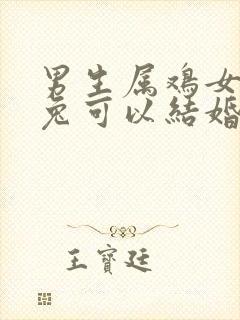 男生属鸡女
兔可以結婚
王寶廷